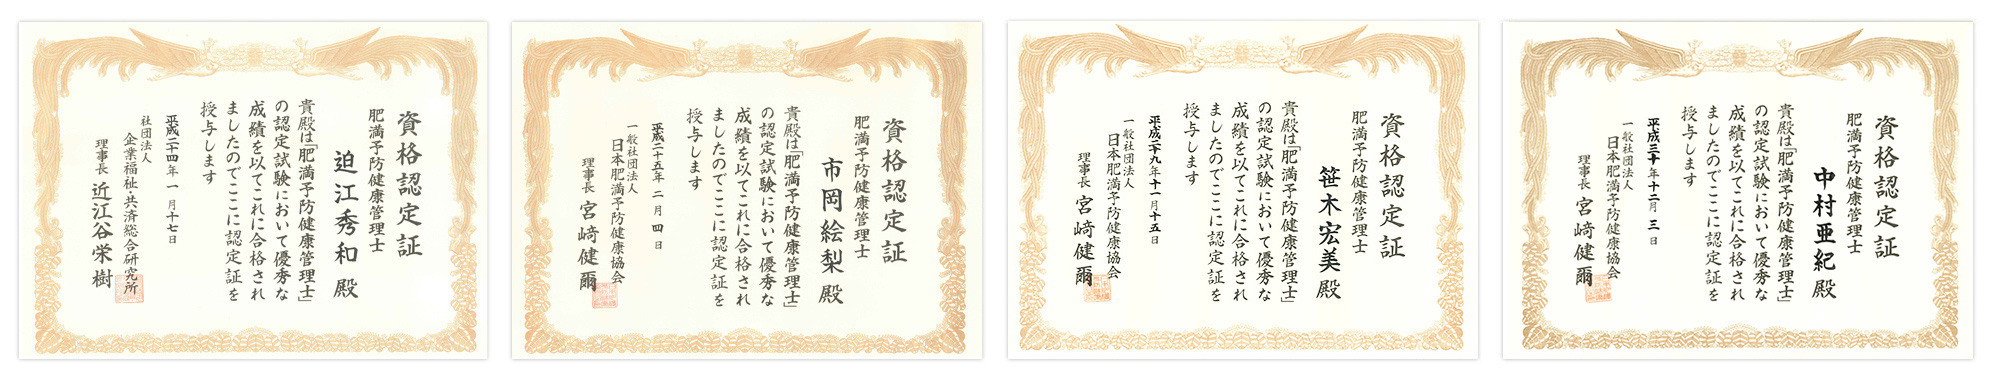 資格認定証
肥満予防健康管理士
迫江秀和 殿
貴殿は「肥満予防健康管理士」
の認定試験において優秀な
成績を以てこれに合格され
ましたのでここに認定証を
授与します
平成二十四年 一月十七日
社団法人
企業福祉・共済総合研究所
理事長 近江谷栄樹
資格認定証
肥満予防健康管理士
市岡絵梨 殿
貴殿は「肥満予防健康管理士」
の認定試験において優秀な
成績を以てこれに合格され
ましたのでここに認定証を
授与します
平成二十五年 二月四日
一般社団法人
日本肥満予防健康協会
理事長 宮崎健爾
資格認定証
肥満予防健康管理士
笹木宏美 殿
貴殿は「肥満予防健康管理士」
の認定試験において優秀な
成績を以てこれに合格され
ましたのでここに認定証を
授与します
平成二十九年十一月十五日
一般社団法人
日本肥満予防健康協会
理事長 宮崎健爾
資格認定証
肥満予防健康管理士
中村亜紀 殿
貴殿は「肥満予防健康管理士」
の認定試験において優秀な
成績を以てこれに合格され
ましたのでここに認定証を
授与します
平成三十年十二月三日
一般社団法人
日本肥満予防健康協会
理事長 宮崎健爾